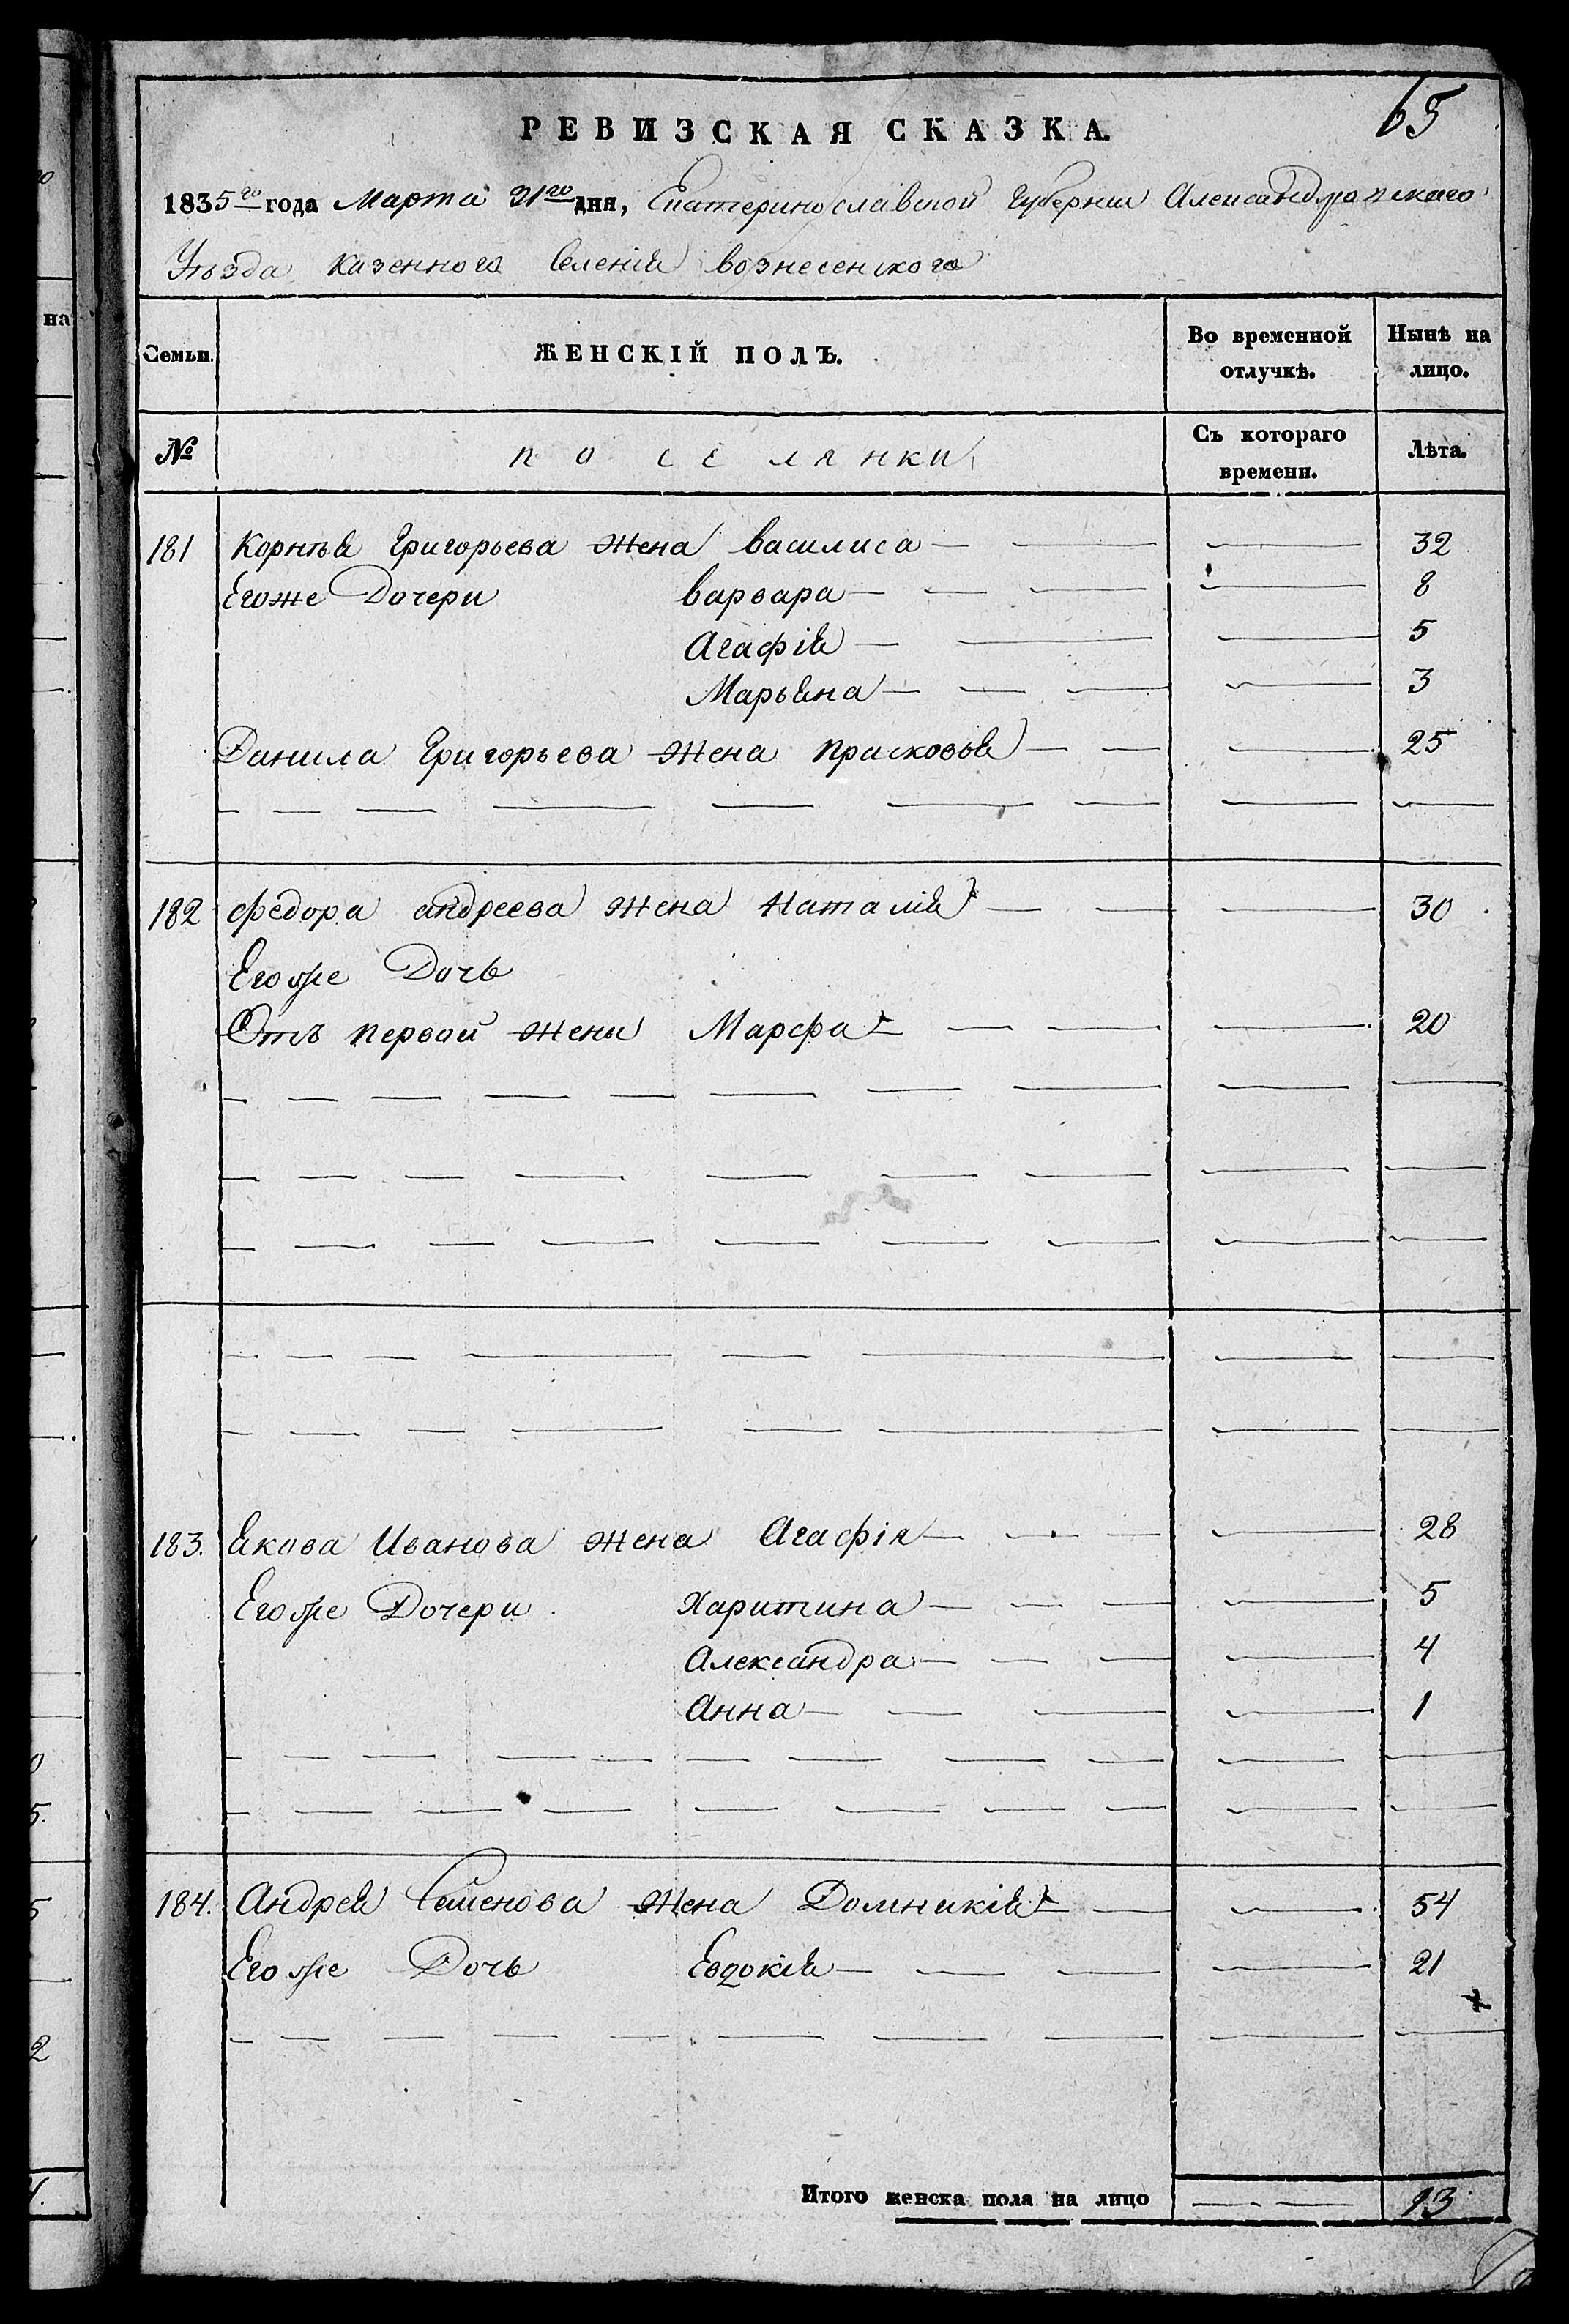 65
РЕВИЗСКАЯ СКАЗКА.
1835го года Марта 31го дня, Екатеринославской Губернии Александровскаго
Уѣзда Казенного Селенія Вознесенского
Семьи. ЖЕНСКІЙ ПОЛЪ. Во временной отлучкѣ. Нынѣ на лицо.
№ поселянки Съ котораго времени. Лѣта.
181 Корнѣя Григорьева Жена Василиса 32
Егоже Дочери Варвара 8
Агафія 5
Марьяна 3
Данила Григорьева Жена Прасковья 25
182 Федора Андреева Жена Наталія 30
Егоже Дочь
Отъ первой Жены Марфа 20
183. Якова Иванова Жена Агафія 28
Егоже Дочери Харитина 5
Александра 4
Анна 1
184. Андрея Семенова Жена Домникія 54
Егоже Дочь Евдокія 21
Итого женска пола на лицо 13
на